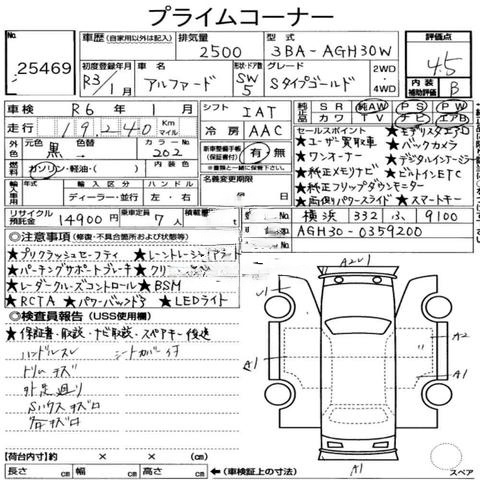 プライムコーナー
No. 25469
車歴 (自家用以外は記入) 排気量 2500 型式 3BA-AGH30W 評価点 4.5
初度登録年月 R3/1 車名 アルファード 形状・ドア数 SW 5 グレード Sタイプゴールド 2WD・4WD 内装補助評価 B
車検 R6年 月 シフト IAT 純正 SR 純AW PS PW
走行 19,240 Km マイル 冷房 AAC 純正 カワ TV ナビ エアB
外色 元色 黒 色替 カラーNo. 202 内装色
セールスポイント ★モデリスタエアロ
★ユーザー買取車 ★バックカメラ
燃料 ガソリン・軽油・( ) 新車整備手帳(保証書付) 有・無 ★ワンオーナー ★デジタルインナーミラー
★書類と一緒に保管して下さい。 ★純正メモリナビ ★ビルトインETC
輸入車用 年式 輸入区分 ハンドル 名義変更期限 ★純正フリップダウンモニター
年 ディーラー・並行 左・右 ★両側パワースライド ★スマートキー
リサイクル預託金 14900円 乗車定員 7人 積載量 横浜 332 ふ 9100
AGH30-0359200
◎注意事項 (修復・不具合箇所および状態等)
★プリクラッシュセーフティ ★レーントレーシング
★パーキングサポートブレーキ ★クリ
★レーダークルーズコントロール ★BSM
★RCTA ★パワーバックドア ★LEDライト
◎検査員報告 (USS使用欄)
★保証書・取説・ナビ取説・スペアキー後送
ハンドルスレ シートカバー付
トリムキズ
外足廻り
Sハウスキズ
キズ
A2 U1
U1
A2
A1
A1
A1
【荷台内寸】約 × × (cm)
長さ cm 幅 cm 高さ cm ←(車検証上の寸法)
スペア